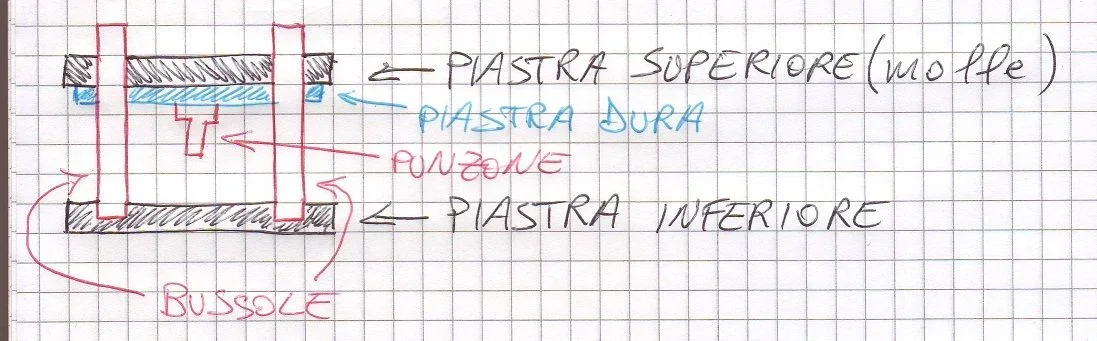 PIASTRA SUPERIORE (molle)
PIASTRA DURA
PUNZONE
PIASTRA INFERIORE
BUSSOLE